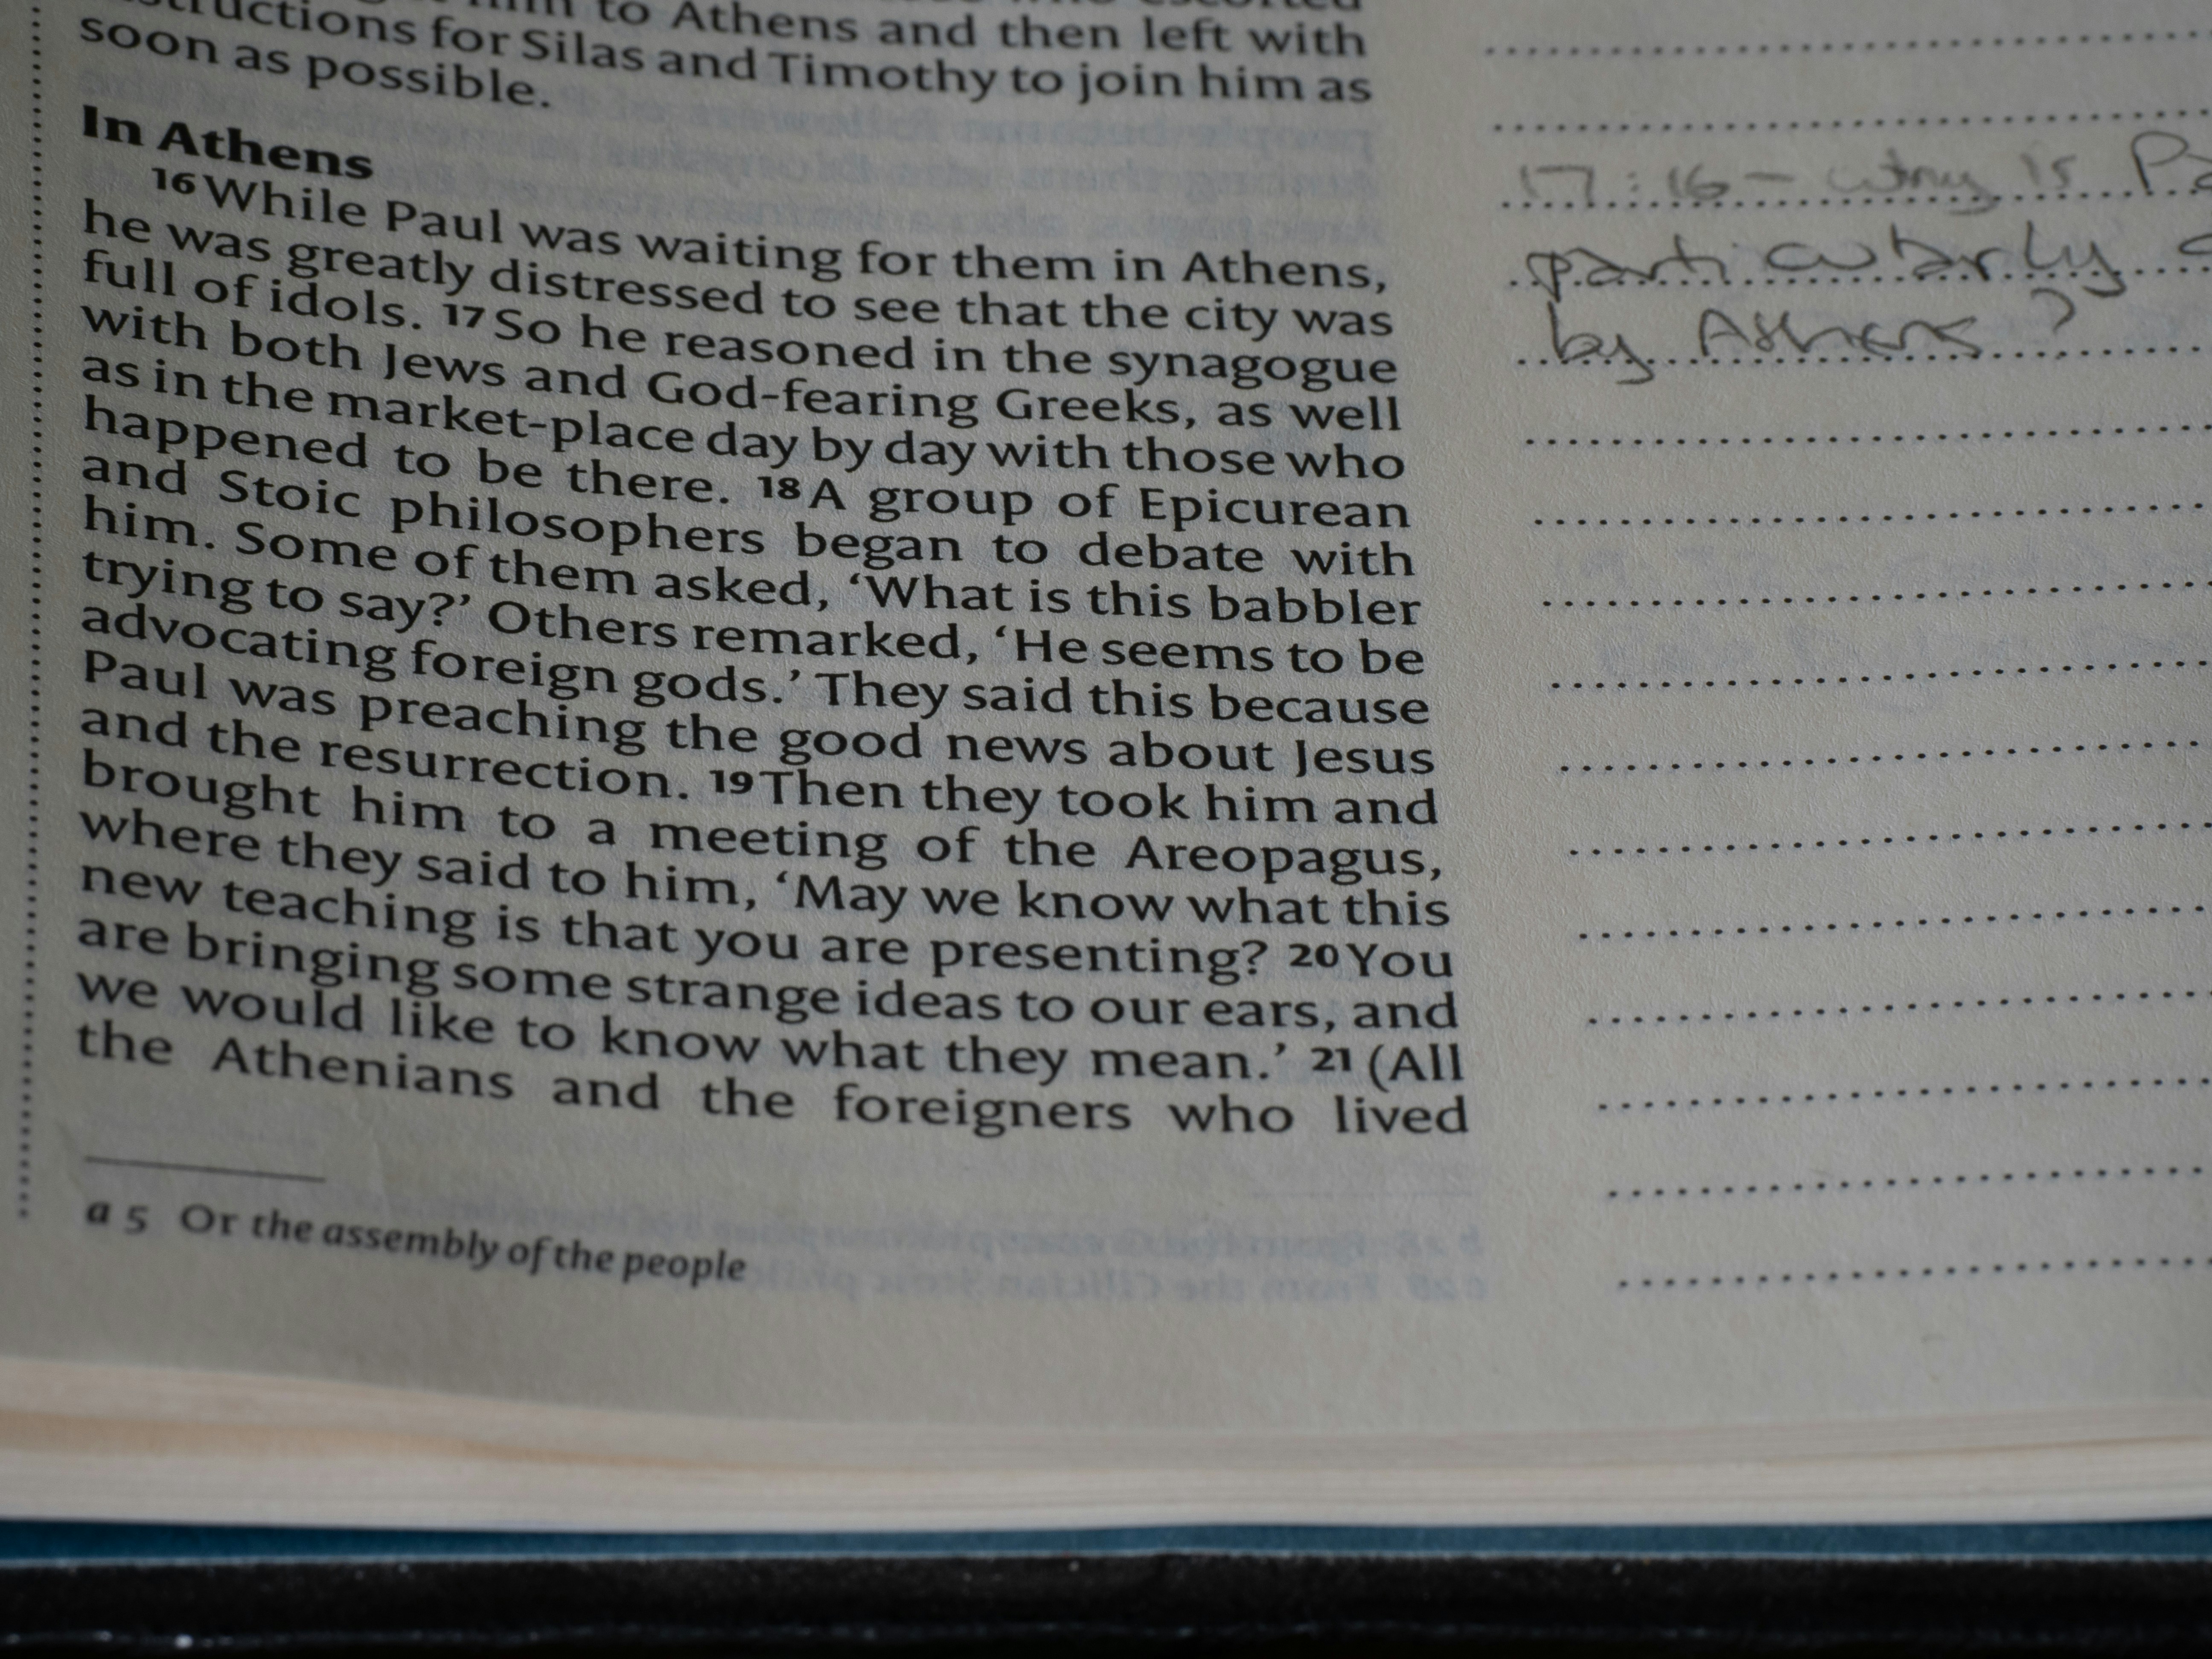 him to Athens and then left with
instructions for Silas and Timothy to join him as
soon as possible.
In Athens
16 While Paul was waiting for them in Athens,
he was greatly distressed to see that the city was
full of idols. 17 So he reasoned in the synagogue
with both Jews and God-fearing Greeks, as well
as in the market-place day by day with those who
happened to be there. 18 A group of Epicurean
and Stoic philosophers began to debate with
him. Some of them asked, ‘What is this babbler
trying to say?’ Others remarked, ‘He seems to be
advocating foreign gods.’ They said this because
Paul was preaching the good news about Jesus
and the resurrection. 19 Then they took him and
brought him to a meeting of the Areopagus,
where they said to him, ‘May we know what this
new teaching is that you are presenting? 20 You
are bringing some strange ideas to our ears, and
we would like to know what they mean.’ 21 (All
the Athenians and the foreigners who lived
a 5 Or the assembly of the people
17:16 - why is Pa
particularly
by Athens?